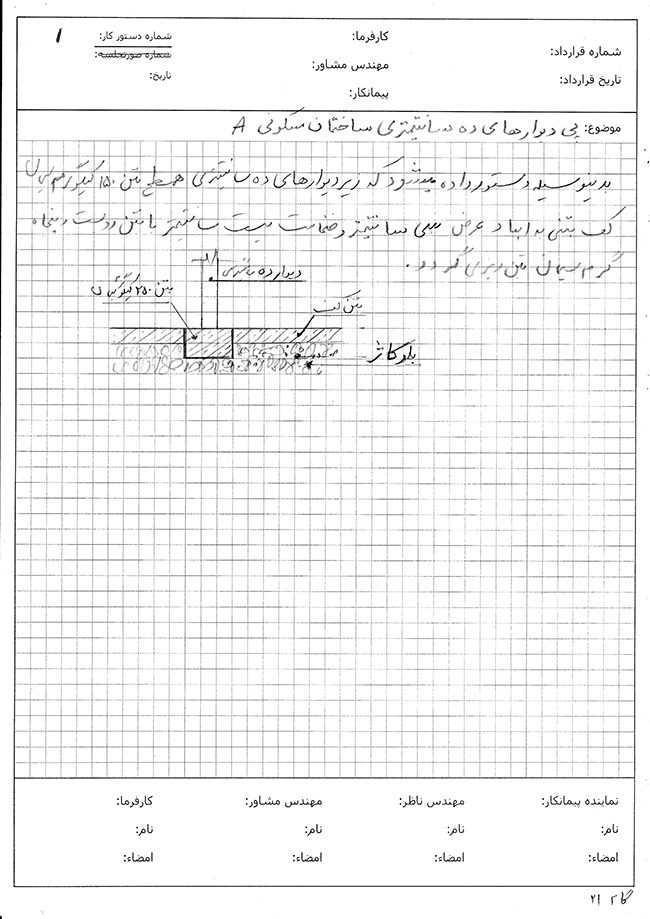 شماره قرارداد:
تاریخ قرارداد:
کارفرما:
مهندس مشاور:
پیمانکار:
شماره دستور کار:
۱
شماره صورتجلسه:
تاریخ:
موضوع: پی دیوارهای ده سانتیمتری ساختمان مسکونی A
بدینوسیله دستور داده میشود که زیر دیوارهای ده سانتیمتری همسطح بتن ۱۵۰ کیلوگرم
کف بتنی به ابعاد عرض سی سانتیمتر و ضخامت بیست سانتیمتر با بتن دویست و پنجاه
گرم سیمان بتن ریزی گردد.
دیوار ده سانتیمتری
بتن ۲۵۰ کیلوگرمی
بتن کف
بلوکاژ
نماینده پیمانکار:
مهندس ناظر:
مهندس مشاور:
کارفرما:
نام:
نام:
نام:
نام:
امضاء:
امضاء:
امضاء:
امضاء: